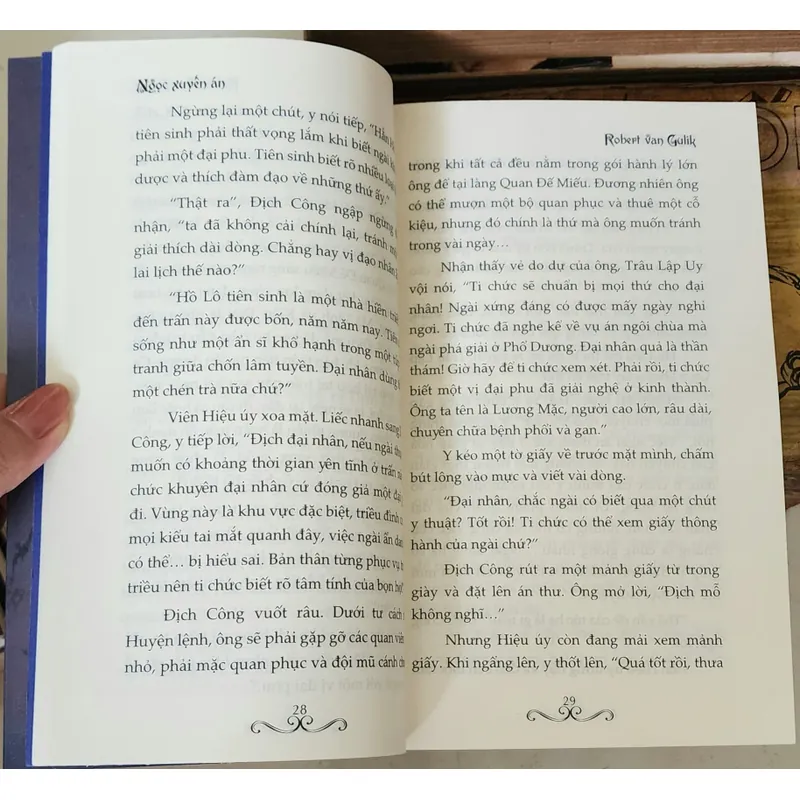 Ngọc xuyến án
Ngừng lại một chút, y nói tiếp, “Hẳn
tiên sinh phải thất vọng lắm khi biết ngài
phải một đại phu. Tiên sinh biết rõ nhiều
dược và thích đàm đạo về những thứ ấy.”
“Thật ra”, Địch Công ngập ngừng
nhận, “ta đã không cải chính lại, tránh
giải thích dài dòng. Chẳng hay vị đạo nhân
lai lịch thế nào?”
“Hồ Lô tiên sinh là một nhà hiền
đến trấn này được bốn, năm năm nay.
sống như một ẩn sĩ khổ hạnh trong một
tranh giữa chốn lâm tuyền. Đại nhân dùng
một chén trà nữa chứ?”
Viên Hiệu úy xoa mặt. Liếc nhanh sang
Công, y tiếp lời, “Địch đại nhân, nếu ngài
muốn có khoảng thời gian yên tĩnh ở trấn
chức khuyên đại nhân cứ đóng giả một đại
đi. Vùng này là khu vực đặc biệt, triều đình
mọi kiểu tai mắt quanh đây, việc ngài ẩn
có thể… bị hiểu sai. Bản thân từng phục vụ
triều nên ti chức biết rõ tâm tính của bọn họ
Địch Công vuốt râu. Dưới tư cách
Huyện lệnh, ông sẽ phải gặp gỡ các quan viên
nhỏ, phải mặc quan phục và đội mũ cánh
28
Robert van Gulik
trong khi tất cả đều nằm trong gói hành lý lớn
ông để tại làng Quan Đế Miếu. Đương nhiên ông
có thể mượn một bộ quan phục và thuê một cỗ
kiệu, nhưng đó chính là thứ mà ông muốn tránh
trong vài ngày…
Nhận thấy vẻ do dự của ông, Trâu Lập Uy
vội nói, “Ti chức sẽ chuẩn bị mọi thứ cho đại
nhân! Ngài xứng đáng có được mấy ngày nghỉ
ngơi. Ti chức đã nghe kể về vụ án ngôi chùa mà
ngài phá giải ở Phổ Dương. Đại nhân quả là thần
thám! Giờ hãy để ti chức xem xét. Phải rồi, ti chức
biết một vị đại phu đã giải nghệ ở kinh thành.
Ông ta tên là Lương Mặc, người cao lớn, râu dài,
chuyên chữa bệnh phổi và gan.”
Y kéo một tờ giấy về trước mặt mình, chấm
bút lông vào mực và viết vài dòng.
“Đại nhân, chắc ngài có biết qua một chút
y thuật? Tốt rồi! Ti chức có thể xem giấy thông
hành của ngài chứ?”
Địch Công rút ra một mảnh giấy từ trong
giày và đặt lên án thư. Ông mở lời, “Địch mỗ
không nghĩ…”
Nhưng Hiệu úy còn đang mải xem mảnh
giấy. Khi ngẩng lên, y thốt lên, “Quá tốt rồi, thưa
29